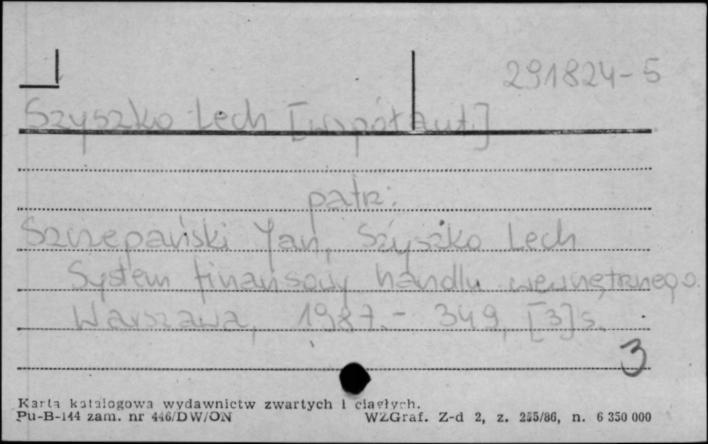 291824-5
Szyszko Lech [współaut.]
patrz:
Szczepański Jan, Szyszko Lech
System finansowy handlu wewnętrznego.
Warszawa, 1987.- 349, [3] s.
3
Karta katalogowa wydawnictw zwartych i ciągłych.
Pu-B-144 zam. nr 446/DW/ON WZGraf. Z-d 2, z. 255/86, n. 6 350 000